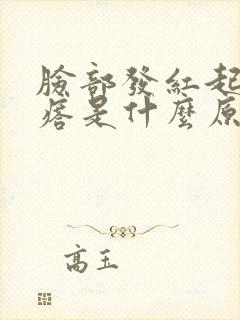 臉部發紅起
痞是什麼原
高玉